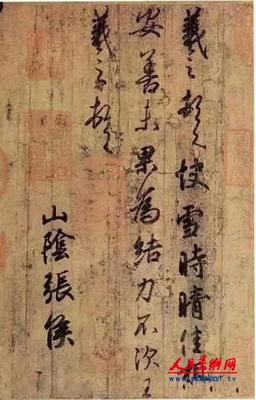 羲之頓首快雪時晴佳想
安善未果為結力不次王
羲之頓首
山陰張侯
人民美术网